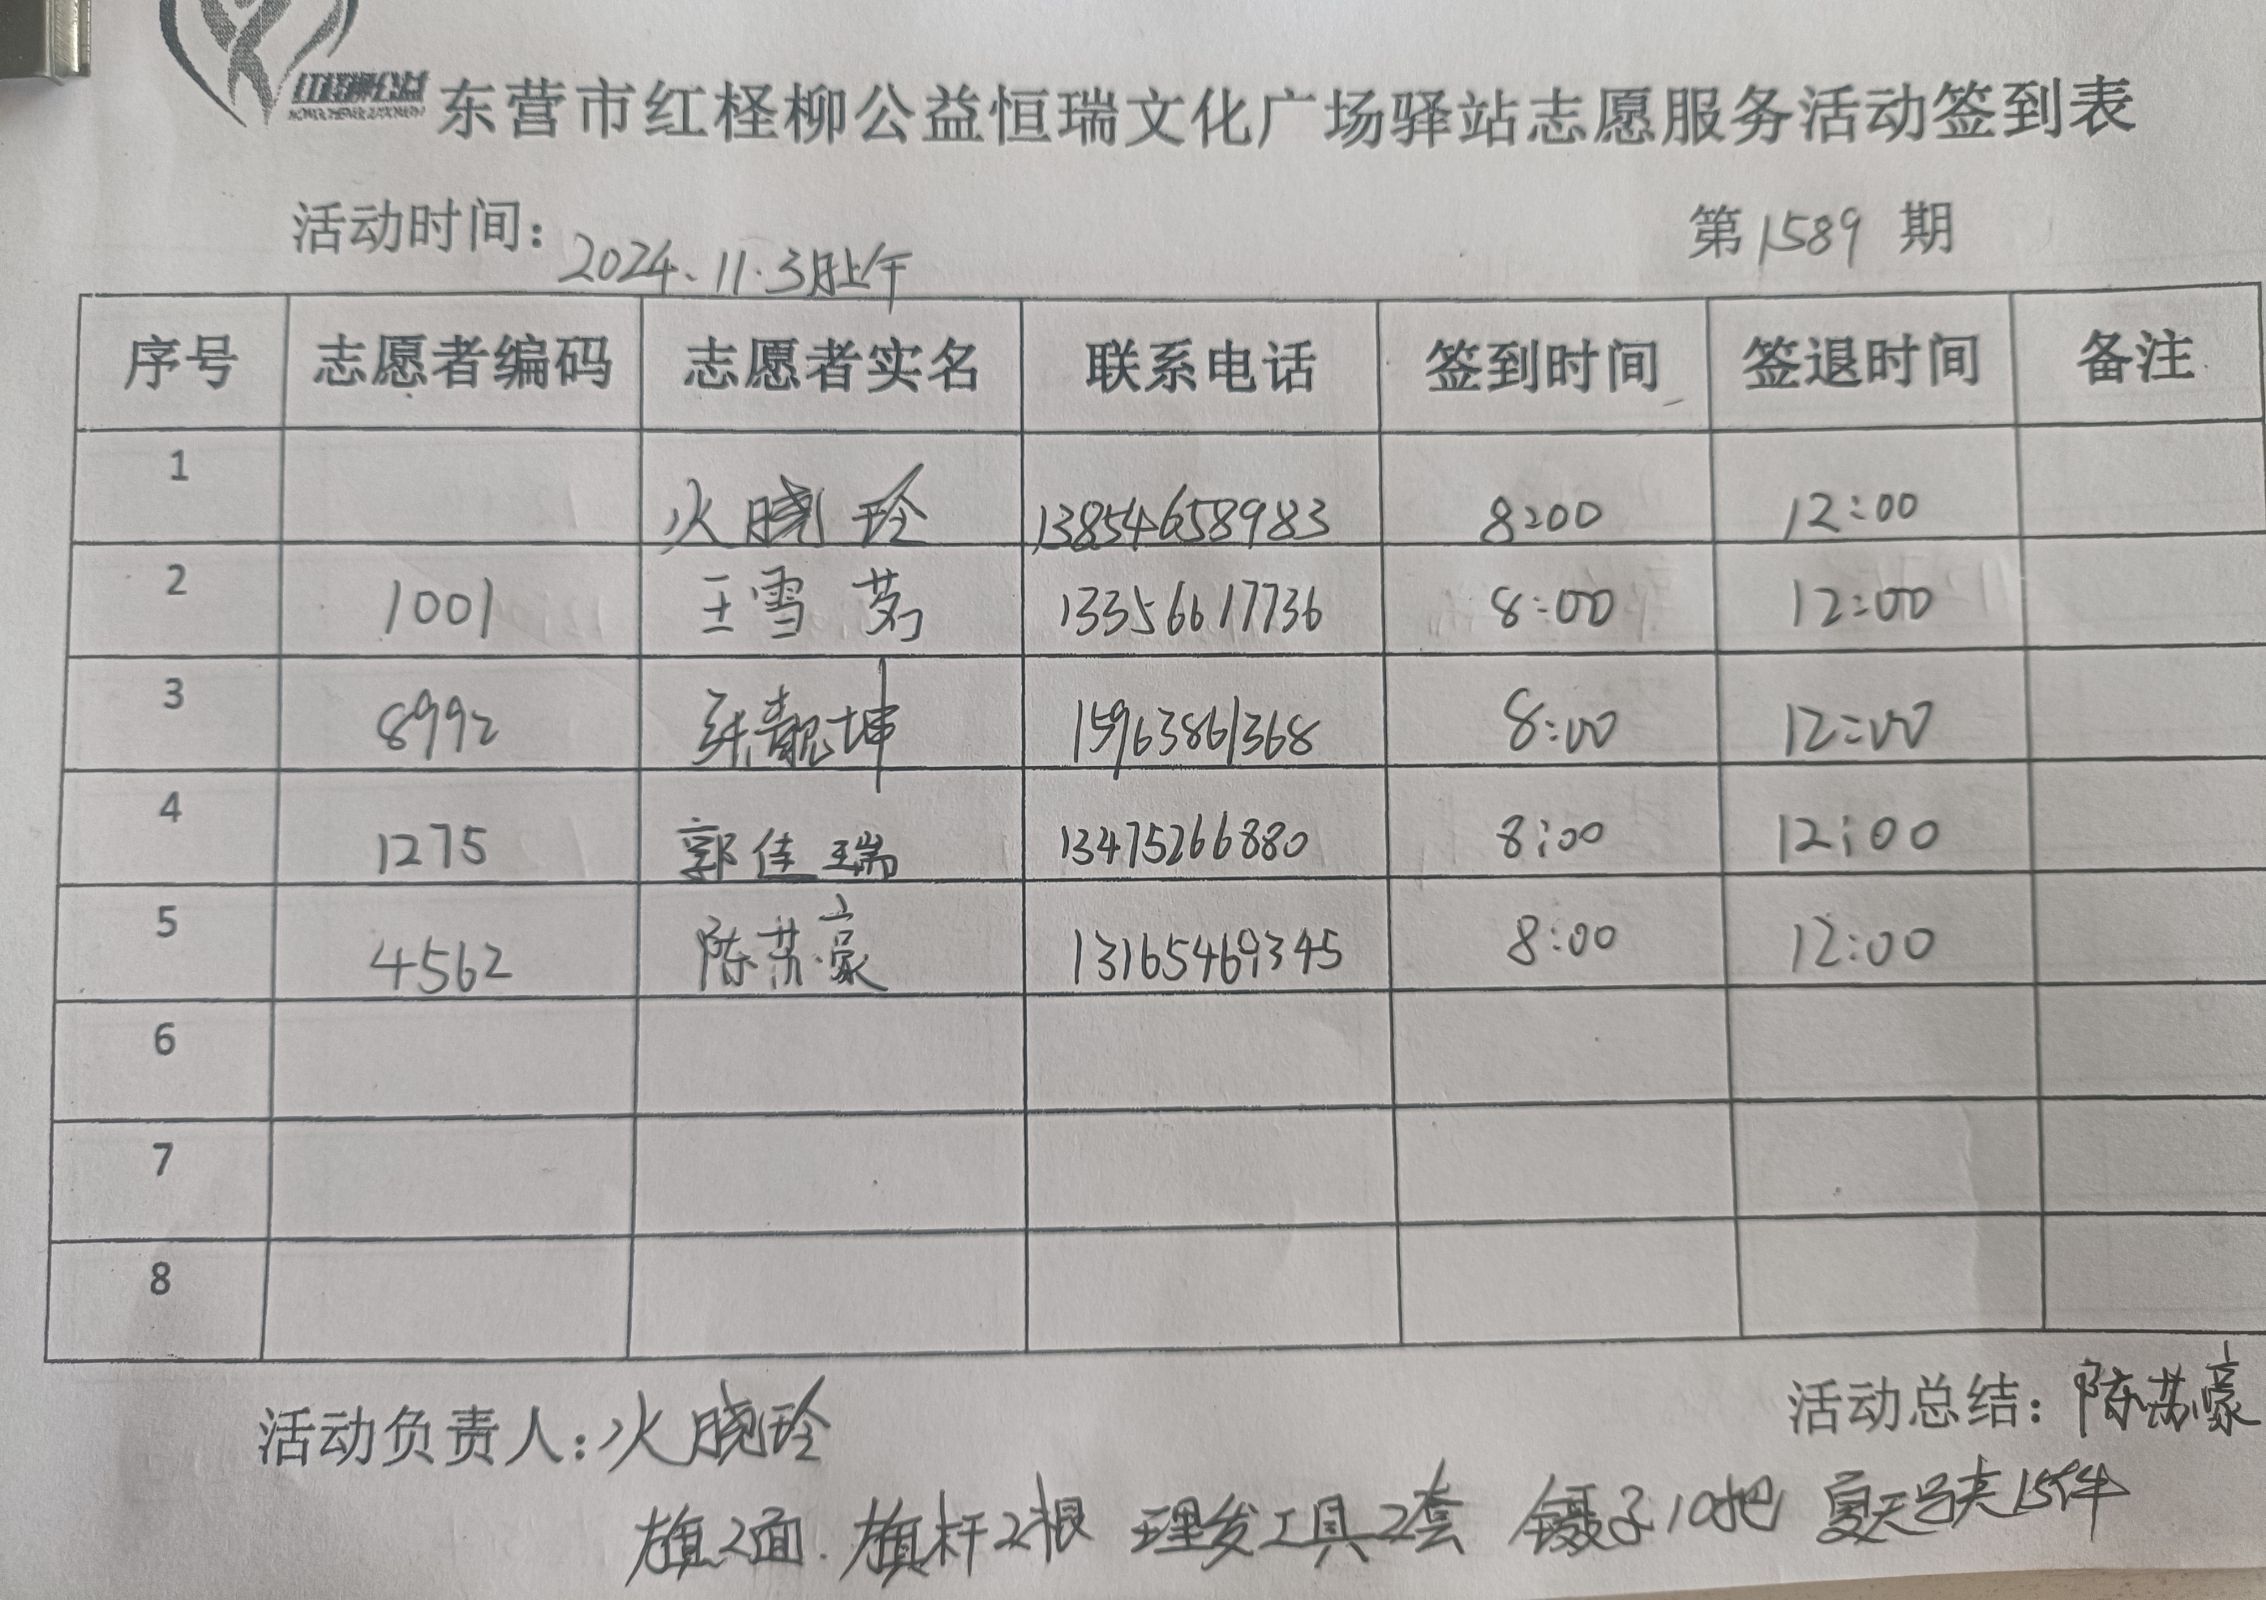 红柽柳公益
东营市红柽柳公益恒瑞文化广场驿站志愿服务活动签到表
活动时间: 2024.11.3日上午 第1589期
序号 志愿者编码 志愿者实名 联系电话 签到时间 签退时间 备注
1 火晓玲 13854658983 8:00 12:00
2 1001 王雪茗 13356617736 8:00 12:00
3 8992 张靓坤 15963861368 8:00 12:00
4 1275 郭佳瑞 13475266880 8:00 12:00
5 4562 陈苏豪 13165469345 8:00 12:00
6
7
8
活动负责人: 火晓玲 活动总结: 陈苏豪
旗2面. 旗杆2根 理发工具2套 镊子10把 夏天马夹15件